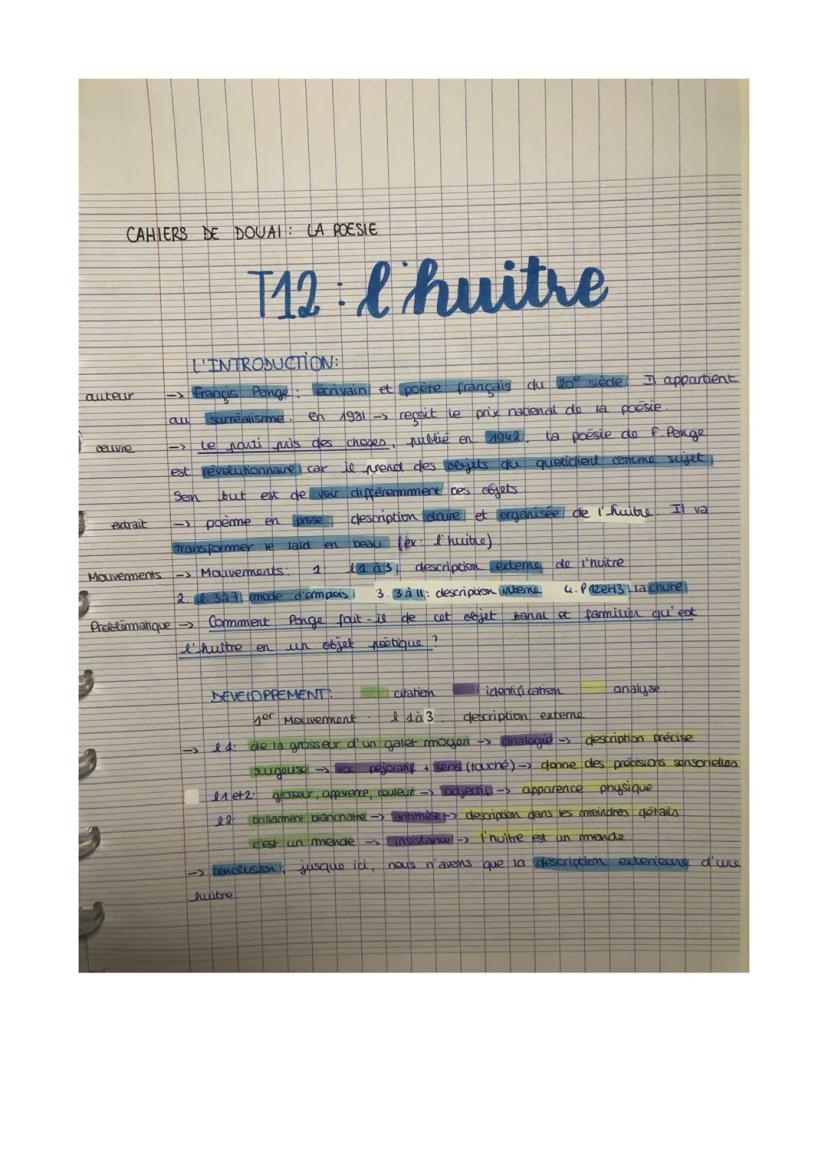 CAHIERS DE DOUAI : LA POESIE
T12 : l'huitre
L'INTRODUCTION:
auteur -> Françis Ponge : écrivain et poète français du 20e siècle. Il appartient
au surréalisme. En 1981 -> reçoit le prix national de la poésie.
œuvre -> Le parti pris des choses, publié en 1942. La poésie de F. Ponge
est révolutionnaire car il prend des objets du quotidient comme sujet.
Son but est de voir différemmment ces objets
extrait -> poème en prose, description claire et organisée de l'huitre. Il va
transformer le laid en beau (ex: l'huitre)
Mouvements -> Mouvements: 1. l 1 à 3, description externe de l'huitre
2. l 3 à 7, mode d'emplois 3. 3 à 11 : description interne 4. P 12 et 13, La chute
Problématique -> Comment Ponge fait-il de cet objet banal et familier qu'est
l'huitre en un objet poétique ?
DEVELOPPEMENT: citation identification analyse
1er Mouvement : l 1 à 3 : description externe
-> l 1: de la grosseur d'un galet moyen -> analogie -> description précise
rugeuse -> voc péjoratif + sens (touché) -> donne des précisions sensorielles
l 1 et 2: grosseur, apparence, couleur -> adjectif -> apparence physique
l 2: brillamment blanchatre -> antithèse -> description dans les moindres détails
c'est un monde -> insistance -> l'huitre est un monde
-> conclusion, jusque ici, nous n'avons que la description exterieure d'une
huitre